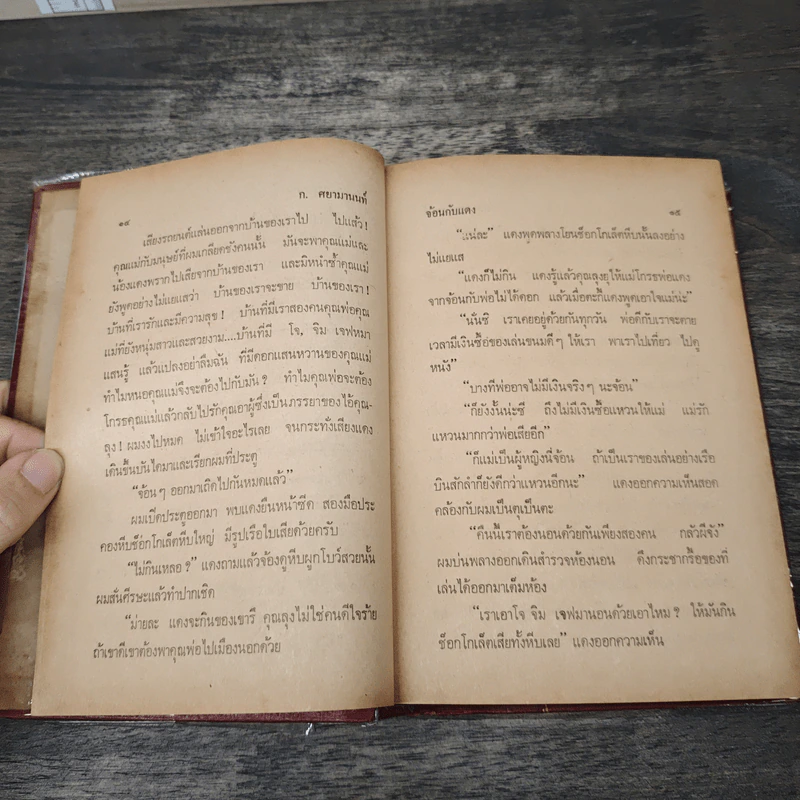 ๑๔
ก. ศยามานนท์
เสียงรถยนต์แล่นออกจากบ้านของเราไป ไปแล้ว!
คุณแม่กับมนุษย์ที่ผมเกลียดชังคนนั้น มันจะพาคุณแม่และ
น้องแดงพรากไปเสียจากบ้านของเรา และมิหนำซ้ำคุณแม่
ยังพูดอย่างไม่แยแสว่า บ้านของเราจะขาย บ้านของเรา!
บ้านที่เรารักและมีความสุข! บ้านที่มีเราสองคนคุณพ่อคุณ
แม่ที่ยังหนุ่มสาวและสวยงาม....บ้านที่มี โจ, จิม เจฟหมา
แสนรู้ แล้วแปลงอย่าลืมฉัน ที่มีดอกแสนหวานของคุณแม่
ทำไมหนอคุณแม่จึงจะต้องไปกับมัน? ทำไมคุณพ่อจะต้อง
โกรธคุณแม่แล้วกลับไปรักคุณอาผู้ซึ่งเป็นภรรยาของไอ้คุณ-
ลุง! ผมงงไปหมด ไม่เข้าใจอะไรเลย จนกระทั่งเสียงแดง
เดินขึ้นบันไดมาและเรียกผมที่ประตู
“จ้อนๆ ออกมาเถิดไปกันหมดแล้ว”
ผมเปิดประตูออกมา พบแดงยืนหน้าซีด สองมือประ
คองหีบช็อกโกเล็ตหีบใหญ่ มีรูปเรือใบเสียด้วยครับ
“ไม่กินเหลอ?” แดงถามแล้วจ้องดูหีบผูกโบว์สวยนั้น
ผมสั่นศีรษะแล้วทำปากเชิด
“ม่ายละ แดงจะกินของเขารึ คุณลุงไม่ใช่คนดีใจร้าย
ถ้าเขาดีเขาต้องพาคุณพ่อไปเมืองนอกด้วย
จ้อนกับแดง
๑๕
“แน่ละ” แดงพูดพลางโยนช็อกโกเล็ตหีบนั้นลงอย่าง
ไม่แยแส
“แดงก็ไม่กิน แดงรู้แล้วคุณลุงยุให้แม่โกรธพ่อแดง
จากจ้อนกับพ่อไม่ได้ดอก แล้วเมื่อตะกี้แดงพูดเอาใจแม่น่ะ”
“นั่นซิ เราเคยอยู่ด้วยกันทุกวัน พ่อดีกับเราจะตาย
เวลามีเงินซื้อของเล่นขนมดีๆ ให้เรา พาเราไปเที่ยว ไปดู
หนัง”
“บางทีพ่ออาจไม่มีเงินจริงๆ นะจ้อน”
“ก็ยังงั้นน่ะซี ถึงไม่มีเงินซื้อแหวนให้แม่ แม่รัก
แหวนมากกว่าพ่อเสียอีก”
“ก็แม่เป็นผู้หญิงนี่จ้อน ถ้าเป็นเราของเล่นอย่างเรือ
บินสักลำก็ยังดีกว่าแหวนอีกนะ” แดงออกความเห็นสอด
คล้องกับผมเป็นตุเป็นตะ
“คืนนี้เราต้องนอนด้วยกันเพียงสองคน กลัวผีจัง”
ผมบ่นพลางออกเดินสำรวจห้องนอน ดึงกระชากรื้อของที่
เล่นได้ออกมาเต็มห้อง
“เราเอาโจ จิม เจฟมานอนด้วยเอาไหม? ให้มันกิน
ช็อกโกเล็ตเสียทั้งหีบเลย” แดงออกความเห็น